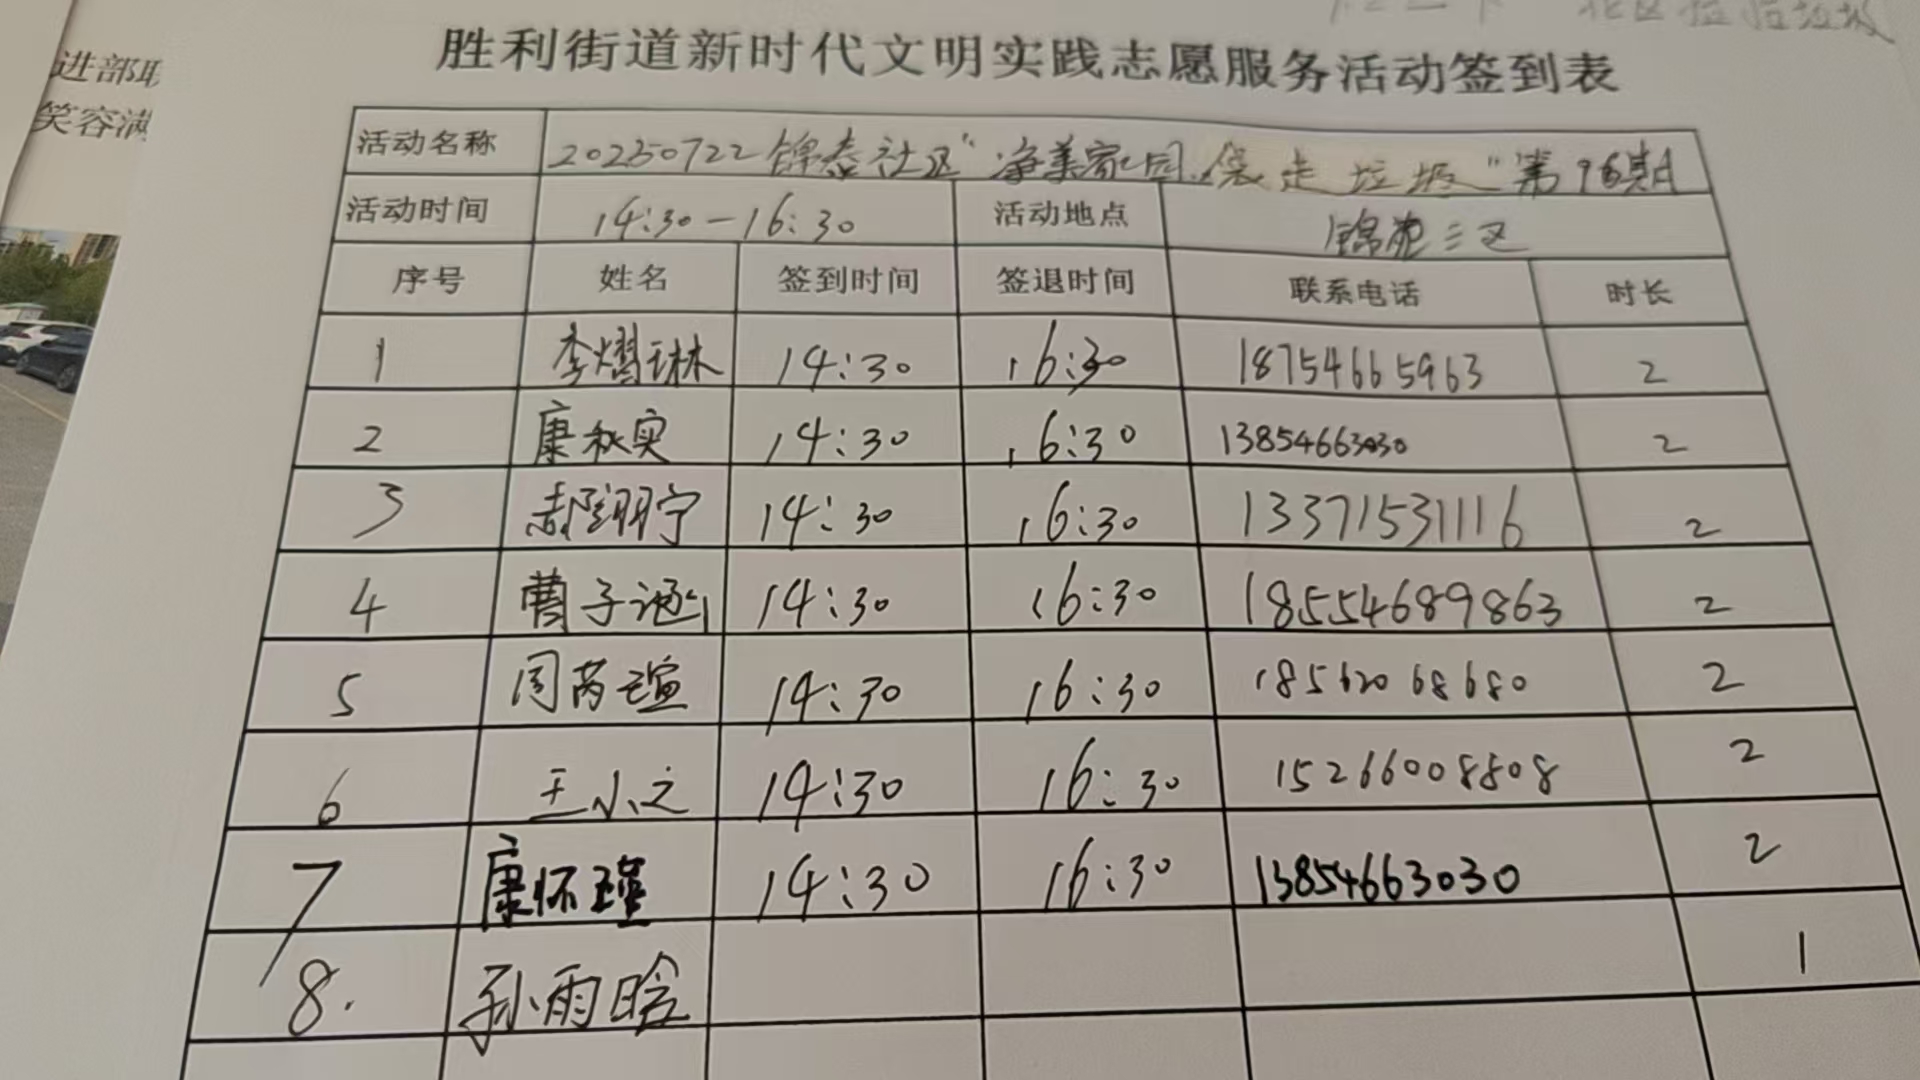 进部联
笑容满
胜利街道新时代文明实践志愿服务活动签到表
活动名称 20250722锦泰社区"净美家园.袋走垃圾"第96期
活动时间 14:30-16:30 活动地点 锦苑三区
序号 姓名 签到时间 签退时间 联系电话 时长
1 李熠琳 14:30 16:30 18754665963 2
2 康秋实 14:30 16:30 13854663030 2
3 郝翊宁 14:30 16:30 13371531116 2
4 曹子涵 14:30 16:30 18554689863 2
5 周芮瑄 14:30 16:30 18562068680 2
6 王小文 14:30 16:30 15266008808 2
7 康怀瑾 14:30 16:30 13854663030 2
8. 孙雨晗 1